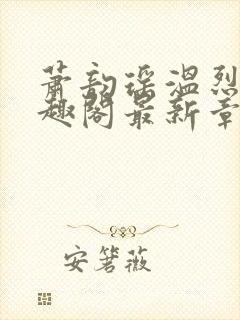 萧韵瑶温烈
趣阁最新章
安箬薇